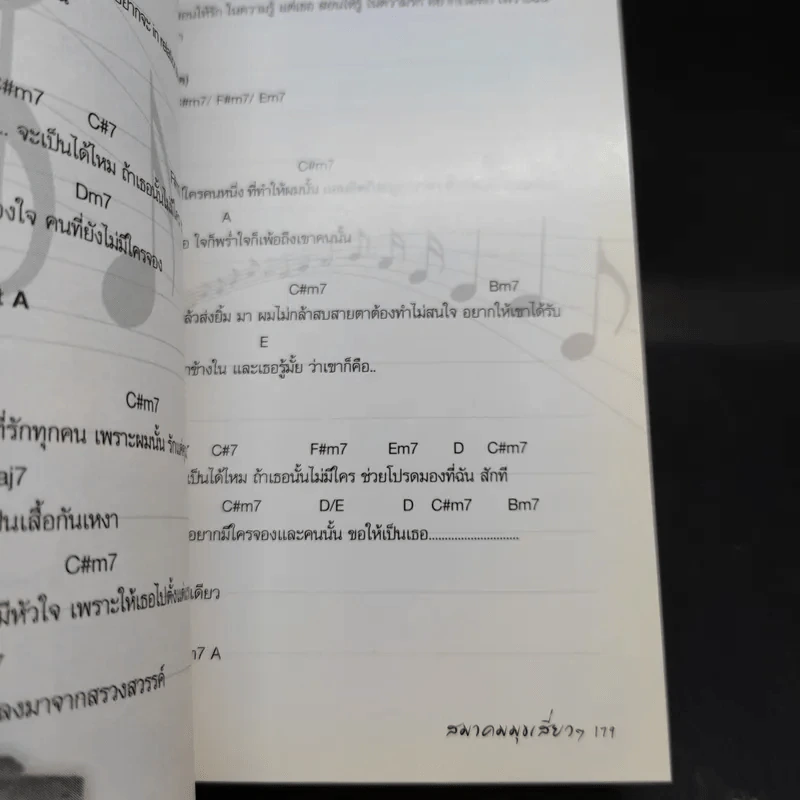 อยากจะ in
#m7
C#7
.. จะเป็นได้ไหม ถ้าเธอนั้นไม่มีใคร
Dm7
องใจ คนที่ยังไม่มีใครจอง
A
C#m7
ที่รักทุกคน เพราะผมนั้น
aj7
ป็นเสื้อกันเหงา
C#m7
มีหัวใจ เพราะให้เธอไปตั้งแต่
7
ลงมาจากสรวงสวรรค์
ในความรู้ แต่เธอ สอนให้รู้ ในความรัก
#m7/ F#m7/ Em7
C#m7
ใครคนหนึ่ง ที่ทำให้ผมนั้น
A
อ ใจก็พร่ำใจก็เพ้อถึงเขาคนนั้น
C#m7 Bm7
ล้วส่งยิ้ม มา ผมไม่กล้าสบสายตาต้องทำไม่สนใจ อยากให้เขาได้รับ
E
าข้างใน และเธอรู้มั้ย ว่าเขาก็คือ..
C#7 F#m7 Em7 D C#m7
เป็นได้ไหม ถ้าเธอนั้นไม่มีใคร ช่วยโปรดมองที่ฉัน สักที
C#m7 D/E D C#m7 Bm7
อยากมีใครจองและคนนั้น ขอให้เป็นเธอ...........................
เดียว
m7 A
สมาคมมุขเสี่ยวๆ 179